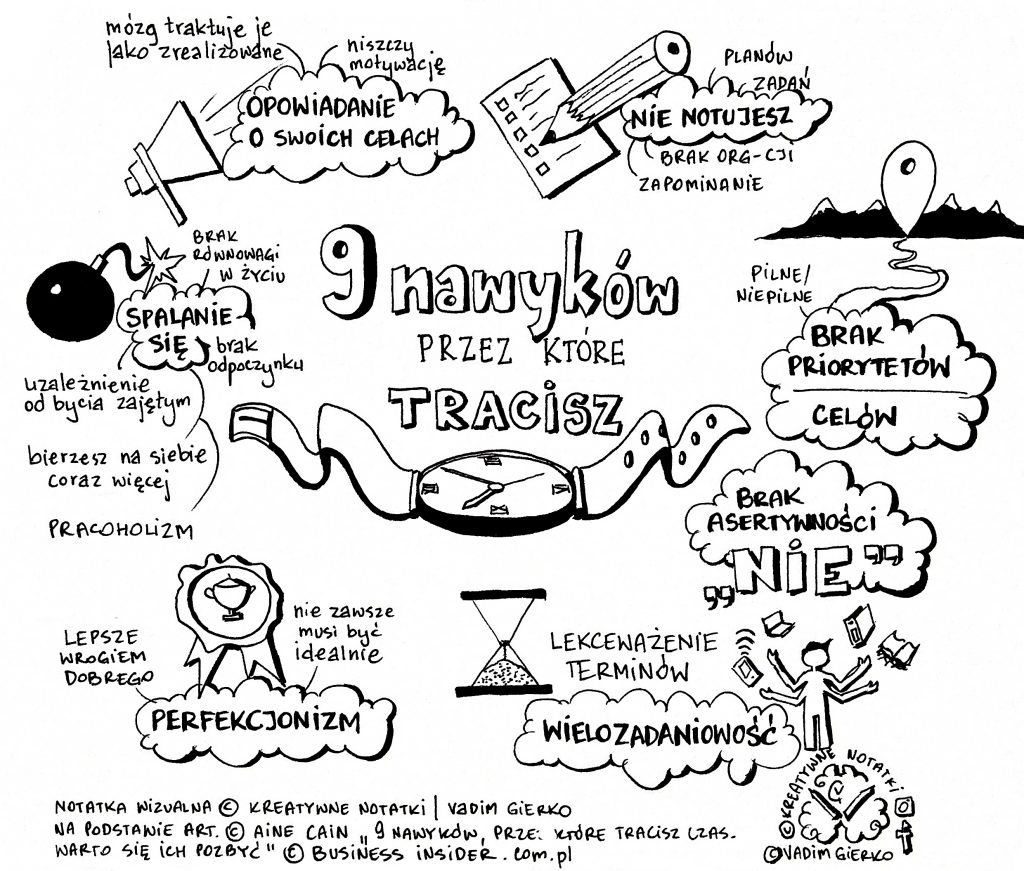 mózg traktuje je
jako zrealizowane
niszczy
motywację
OPOWIADANIE
O SWOICH CELACH
PLANÓW
ZADAŃ
NIE NOTUJESZ
BRAK ORG-CJI
ZAPOMINANIE
BRAK
RÓWNOWAGI
W ŻYCIU
SPALANIE
SIĘ
brak
odpoczynku
uzależnienie
od bycia zajętym
bierzesz na siebie
coraz więcej
PRACOHOLIZM
9 nawyków
PRZEZ KTÓRE
TRACISZ
PILNE/
NIEPILNE
BRAK
PRIORYTETÓW
CELÓW
BRAK
ASERTYWNOŚCI
„NIE”
LEPSZE
WROGIEM
DOBREGO
nie zawsze
musi być
idealnie
PERFEKCJONIZM
LEKCEWAŻENIE
TERMINÓW
WIELOZADANIOWOŚĆ
NOTATKA WIZUALNA © KREATYWNE NOTATKI | VADIM GIERKO
NA PODSTAWIE ART. © AINE CAIN „9 NAWYKÓW, PRZE: KTÓRE TRACISZ CZAS.
WARTO SIĘ ICH POZBYĆ" © BUSINESS INSIDER.com.pl
© KREATYWNE NOTATKI
© VADIM GIERKO